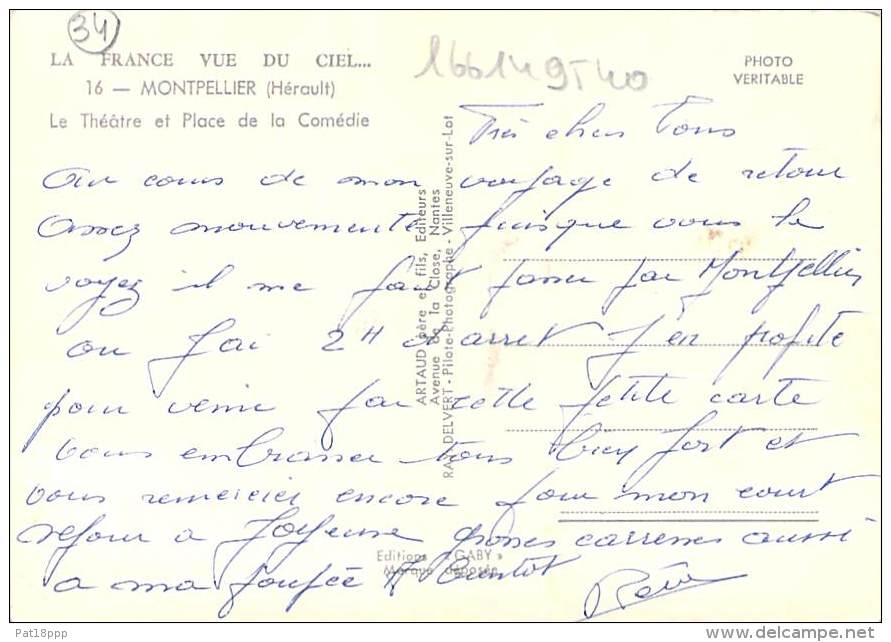 34
LA FRANCE VUE DU CIEL...
16 — MONTPELLIER (Hérault)
Le Théâtre et Place de la Comédie
PHOTO
VERITABLE
Très chers Tous
Au cours de mon voyage de retour
assez mouvementé puisque vous le
voyez il me faut passer par Montpellier
ou j'ai 2H d'arret J'en profite
pour venir par cette petite carte
vous embrasser tous bien fort et
vous remercier encore pour mon court
sejour a Joyeuse grosses caresses aussi
a ma poupée A Bientôt
ARTAUD père et fils, Editeurs
Avenue de la Close, Nantes
RAY DELVERT - Pilote-Photographe - Villeneuve-sur-Lot
Editions « GABY »
Marque déposée
Pat18ppp
delcampe.net